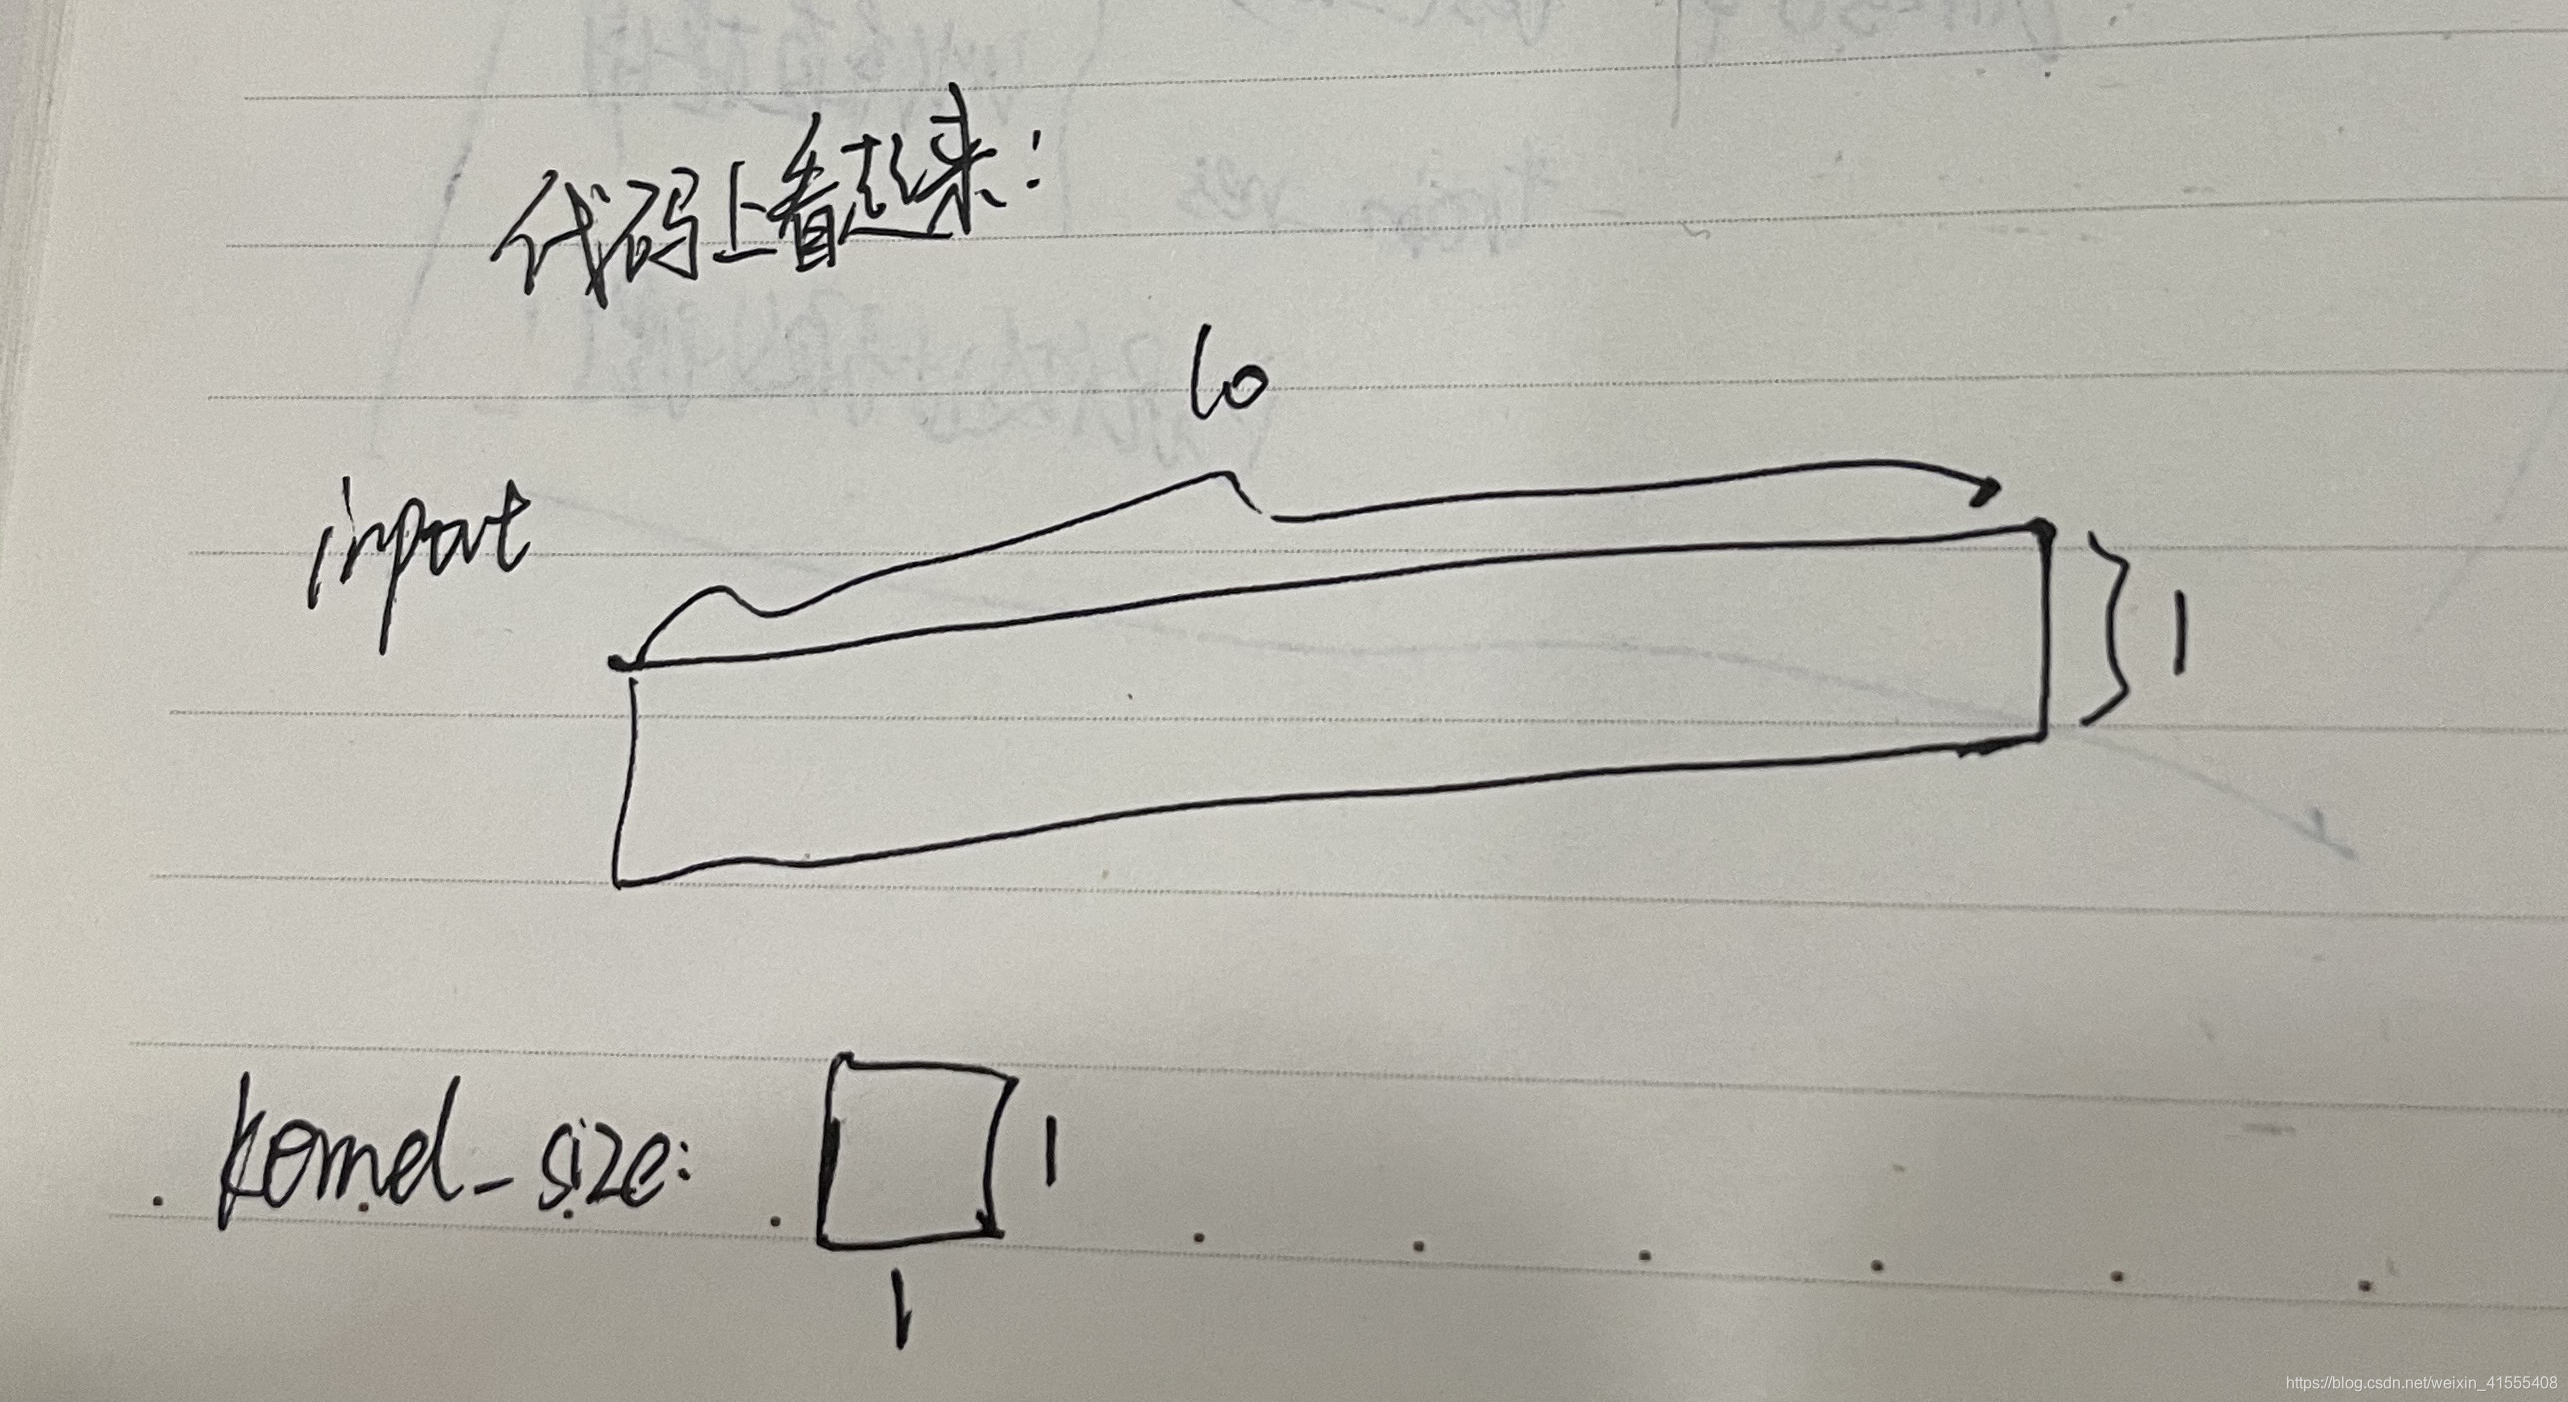 代码上看起来:
10
input
1
kernel_size:
1
1
https://blog.csdn.net/weixin_41555408